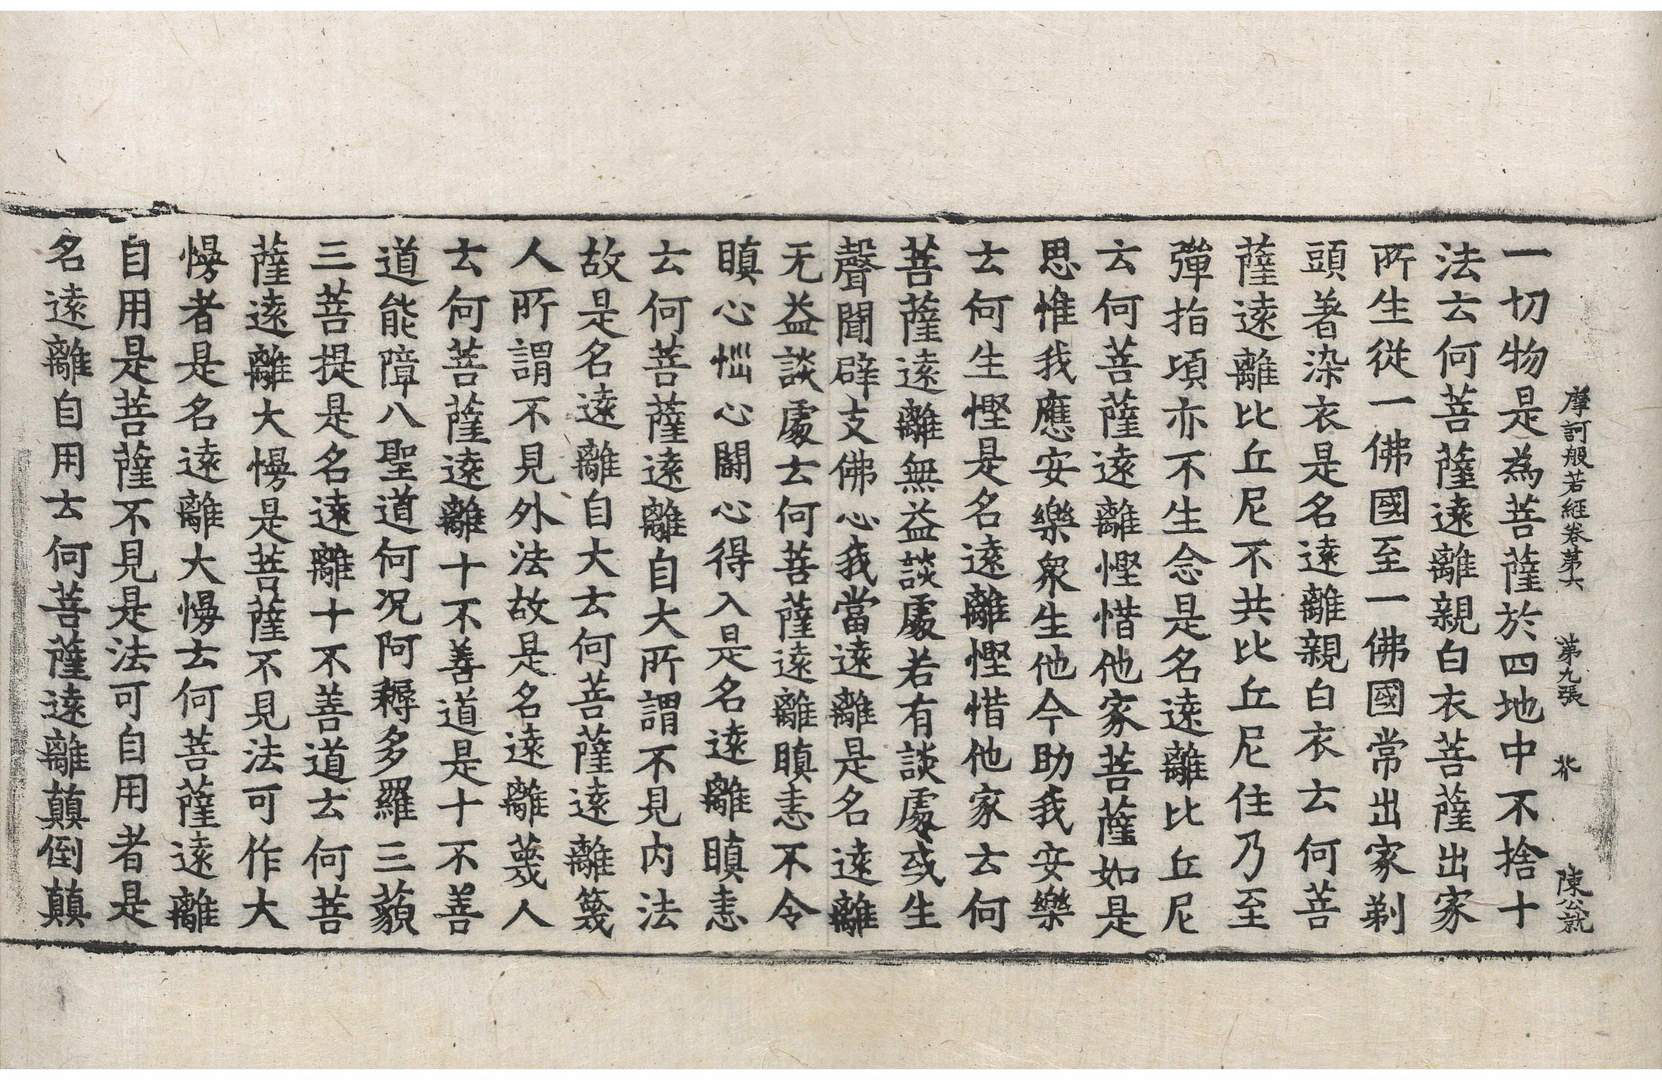 摩訶般若經卷第六 第九張 芥 陳公就
一切物是為菩薩於四地中不捨十
法云何菩薩遠離親白衣菩薩出家
所生從一佛國至一佛國常出家剃
頭著染衣是名遠離親白衣云何菩
薩遠離比丘尼不共比丘尼住乃至
彈指頃亦不生念是名遠離比丘尼
云何菩薩遠離慳惜他家菩薩如是
思惟我應安樂衆生他今助我安樂
云何生慳是名遠離慳惜他家云何
菩薩遠離無益談處若有談處或生
聲聞辟支佛心我當遠離是名遠離
无益談處云何菩薩遠離瞋恚不令
瞋心惱心鬪心得入是名遠離瞋恚
云何菩薩遠離自大所謂不見內法
故是名遠離自大云何菩薩遠離篾
人所謂不見外法故是名遠離蔑人
云何菩薩遠離十不善道是十不善
道能障八聖道何况阿耨多羅三藐
三菩提是名遠離十不善道云何菩
薩遠離大慢是菩薩不見法可作大
慢者是名遠離大慢云何菩薩遠離
自用是菩薩不見是法可自用者是
名遠離自用云何菩薩遠離顛倒顛